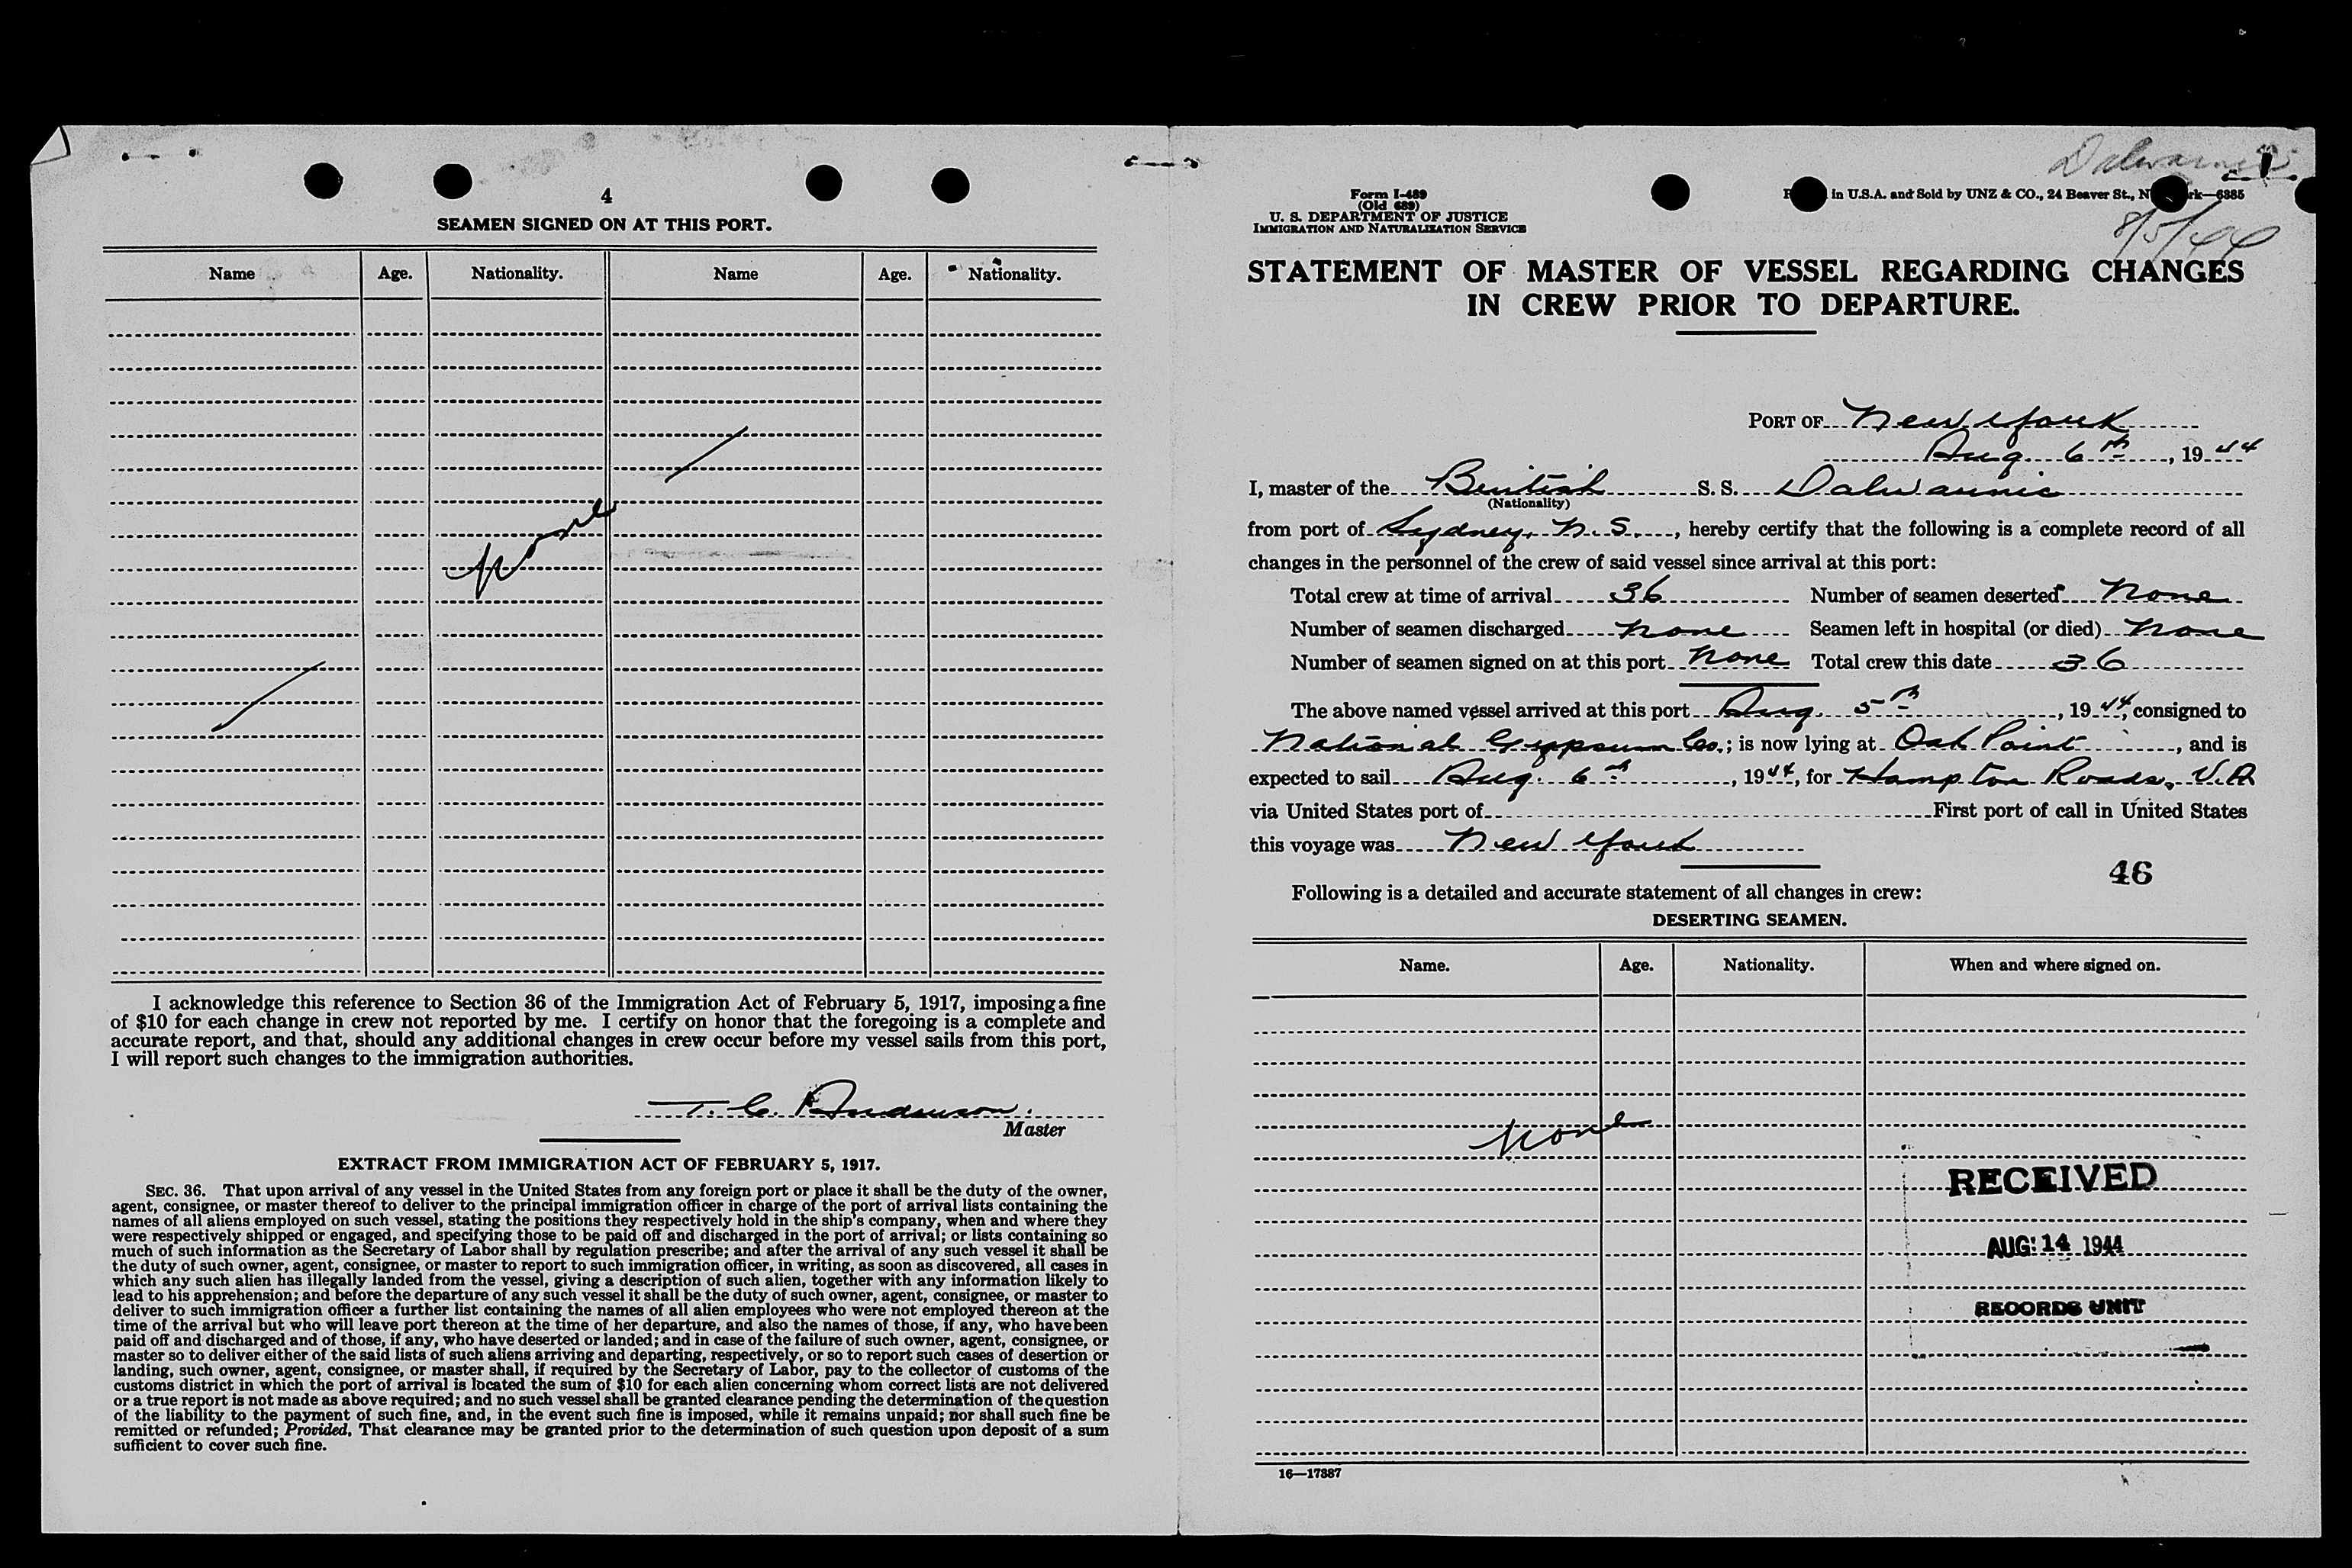 4
SEAMEN SIGNED ON AT THIS PORT.
Name Age. Nationality. Name Age. Nationality.
None
I acknowledge this reference to Section 36 of the Immigration Act of February 5, 1917, imposing a fine
of $10 for each change in crew not reported by me. I certify on honor that the foregoing is a complete and
accurate report, and that, should any additional changes in crew occur before my vessel sails from this port,
I will report such changes to the immigration authorities.
T. C. Anderson.
Master
EXTRACT FROM IMMIGRATION ACT OF FEBRUARY 5, 1917.
SEC. 36. That upon arrival of any vessel in the United States from any foreign port or place it shall be the duty of the owner,
agent, consignee, or master thereof to deliver to the principal immigration officer in charge of the port of arrival lists containing the
names of all aliens employed on such vessel, stating the positions they respectively hold in the ship's company, when and where they
were respectively shipped or engaged, and specifying those to be paid off and discharged in the port of arrival; or lists containing so
much of such information as the Secretary of Labor shall by regulation prescribe; and after the arrival of any such vessel it shall be
the duty of such owner, agent, consignee, or master to report to such immigration officer, in writing, as soon as discovered, all cases in
which any such alien has illegally landed from the vessel, giving a description of such alien, together with any information likely to
lead to his apprehension; and before the departure of any such vessel it shall be the duty of such owner, agent, consignee, or master to
deliver to such immigration officer a further list containing the names of all alien employees who were not employed thereon at the
time of the arrival but who will leave port thereon at the time of her departure, and also the names of those, if any, who have been
paid off and discharged and of those, if any, who have deserted or landed; and in case of the failure of such owner, agent, consignee, or
master so to deliver either of the said lists of such aliens arriving and departing, respectively, or so to report such cases of desertion or
landing, such owner, agent, consignee, or master shall, if required by the Secretary of Labor, pay to the collector of customs of the
customs district in which the port of arrival is located the sum of $10 for each alien concerning whom correct lists are not delivered
or a true report is not made as above required; and no such vessel shall be granted clearance pending the determination of the question
of the liability to the payment of such fine, and, in the event such fine is imposed, while it remains unpaid; nor shall such fine be
remitted or refunded; Provided, That clearance may be granted prior to the determination of such question upon deposit of a sum
sufficient to cover such fine.
Form I-489
(Old 689)
U. S. DEPARTMENT OF JUSTICE
IMMIGRATION AND NATURALIZATION SERVICE
in U.S.A. and Sold by UNZ & CO., 24 Beaver St., N rk—6385
8/5/44
STATEMENT OF MASTER OF VESSEL REGARDING CHANGES
IN CREW PRIOR TO DEPARTURE.
PORT OF New York
Aug. 6th, 1944
I, master of the British S. S. Dalwarnic
(Nationality)
from port of Sydney, N.S., hereby certify that the following is a complete record of all
changes in the personnel of the crew of said vessel since arrival at this port:
Total crew at time of arrival 36 Number of seamen deserted None
Number of seamen discharged None Seamen left in hospital (or died) None
Number of seamen signed on at this port None Total crew this date 36
The above named vessel arrived at this port Aug. 5th, 1944, consigned to
National Gypsum Co.; is now lying at Oak Point, and is
expected to sail Aug. 6th, 1944, for Hampton Roads, V.A
via United States port of First port of call in United States
this voyage was New York
46
Following is a detailed and accurate statement of all changes in crew:
DESERTING SEAMEN.
Name. Age. Nationality. When and where signed on.
None
RECEIVED
AUG 14 1944
RECORDS UNIT
16—17887